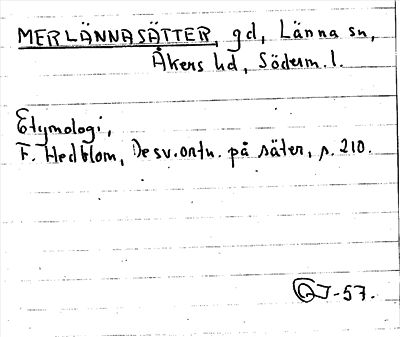 MERLÄNNASÄTTER, gd, Länna sn,
Åkers hd, Söderm. l.
Etymologi,
F. Hedblom, De sv. ortn. på säter, s. 210.
J-57.